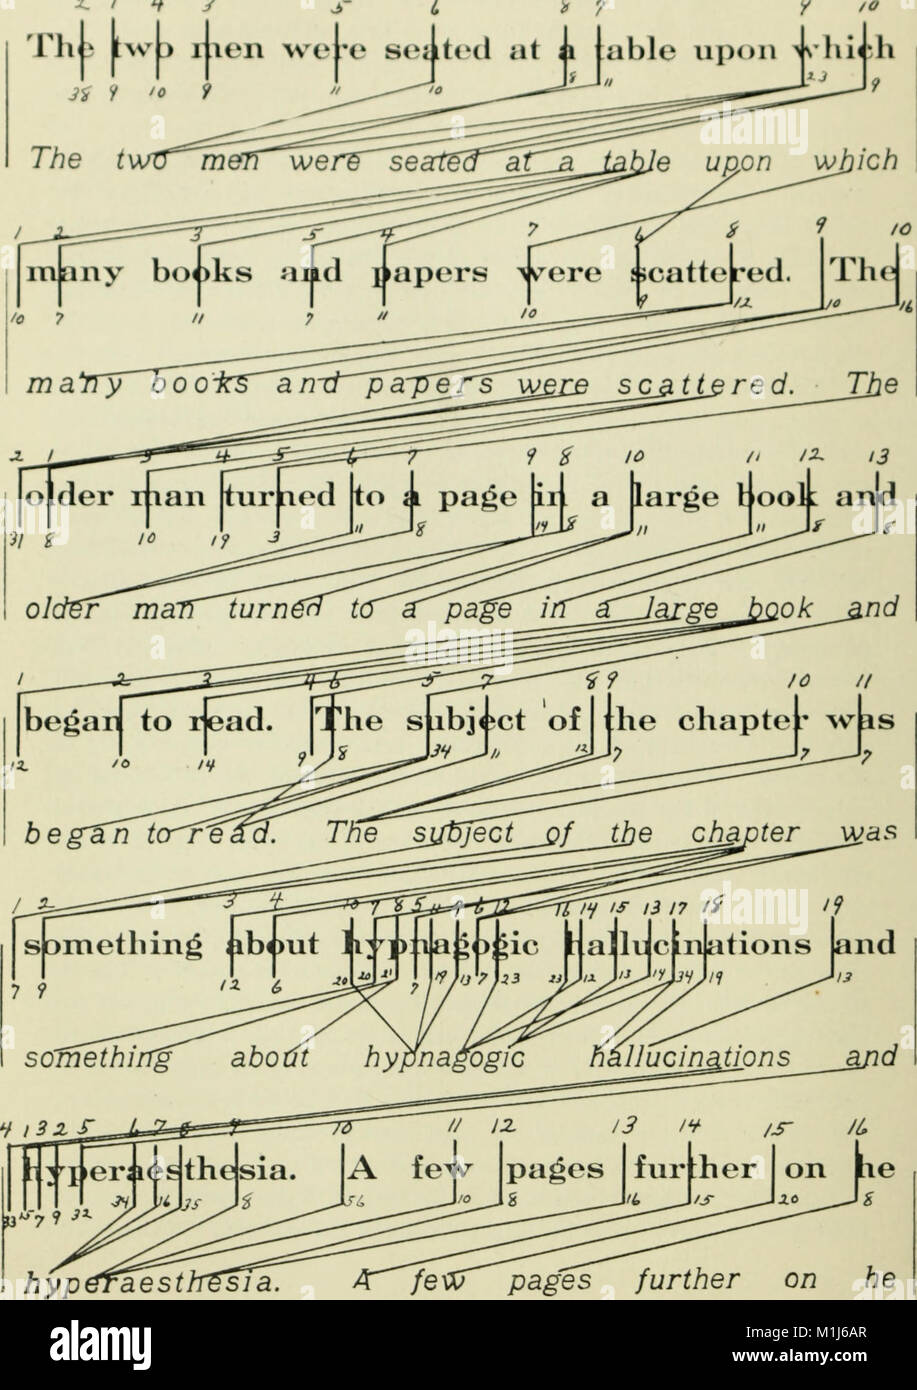 2 1 4 3 5 6 8 7 9 10
The two men were seated at a table upon which
38 9 10 9 11 10 8 11 23 9
The two men were seated at a table upon which
1 2 3 5 4 7 6 8 9 10
many books and papers were scattered. The
10 7 11 7 11 10 9 12 10 16
many books and papers were scattered. The
2 1 3 4 5 6 7 9 8 10 11 12 13
older man turned to a page in a large book and
31 8 10 19 3 11 8 14 8 11 11 8 8
older man turned to a page in a large book and
1 2 3 4 6 5 7 8 9 10 11
began to read. The subject of the chapter was
12 10 14 9 8 34 11 12 7 7 7
began to read. The subject of the chapter was
1 2 3 4 10 7 8 5 11 9 6 12 16 14 15 13 17 18 19
something about hypnagogic hallucinations and
7 9 12 6 20 20 21 7 19 13 7 23 23 12 13 14 34 19 13
something about hypnagogic hallucinations and
4 1 3 2 5 6 7 8 9 10 11 12 13 14 15 16
hyperaesthesia. A few pages further on he
33 15 7 9 32 34 16 35 8 56 10 8 16 15 20 8
hyperaesthesia. A few pages further on he
alamy
Image ID: M1J6AR
www.alamy.com